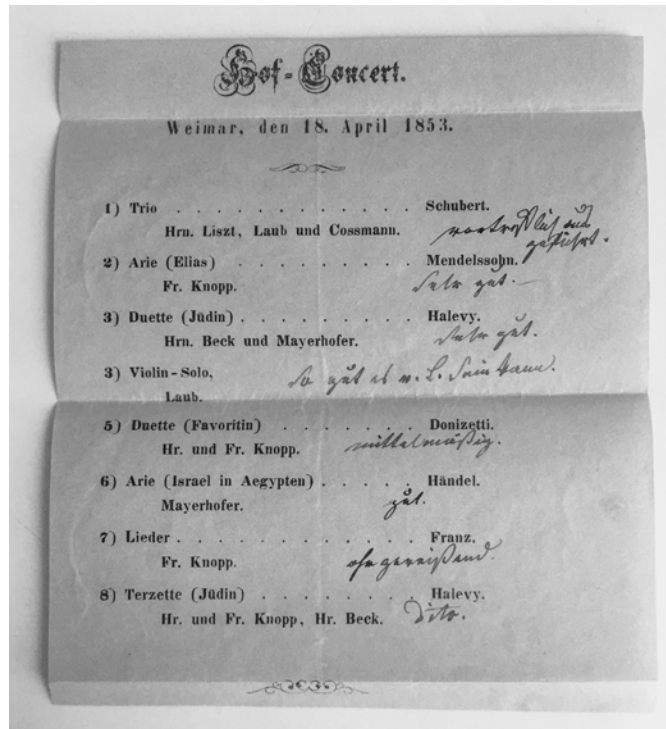 Hof-Concert.
Weimar, den 18. April 1853.
1) Trio . . . . . . . . . . . . . Schubert.
Hrn. Liszt, Laub und Cossmann. vortrefflich aus
geführt.
2) Arie (Elias) . . . . . . . . . Mendelssohn.
Fr. Knopp. Sehr gut.
3) Duette (Jüdin) . . . . . . . . . Halevy.
Hrn. Beck und Mayerhofer. Sehr gut.
3) Violin-Solo. So gut es v. L. sein kann.
Laub.
5) Duette (Favoritin) . . . . . . . Donizetti.
Hr. und Fr. Knopp. mittelmäßig.
6) Arie (Israel in Aegypten) . . . . . Händel.
Mayerhofer. gut.
7) Lieder . . . . . . . . . . . . . Franz.
Fr. Knopp. ohrzerreißend.
8) Terzette (Jüdin) . . . . . . . . Halevy.
Hr. und Fr. Knopp, Hr. Beck. Dito.